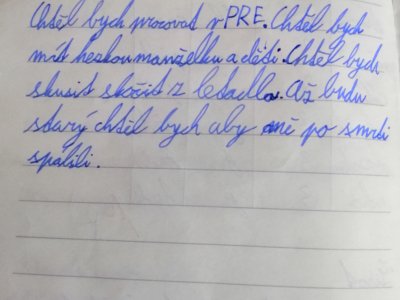 Chtěl bych pracovat v PRE. Chtěl bych
mít hezkou manželku a děti. Chtěl bych
skusit skočit z letadla. Až budu
starý chtěl bych aby mě po smrti
spálili.